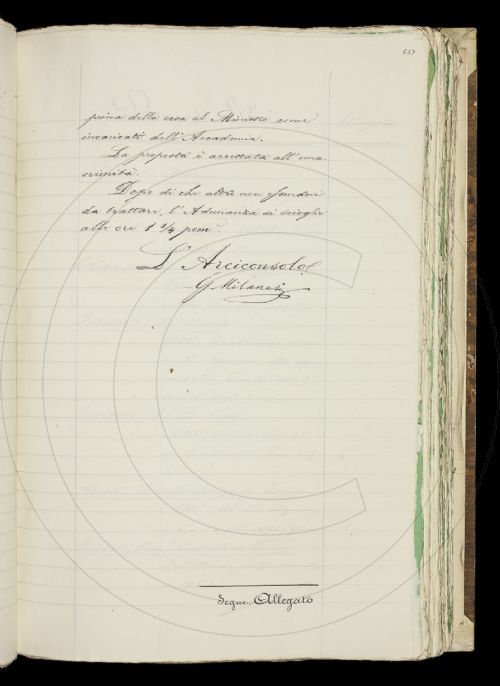 637
prima della cosa al Ministro come
incaricati dell'Accademia.
La proposta è accettata all'una
nimità.
Dopo di che altro non essendovi
da trattare, l'Adunanza si scioglie
alle ore 1 3/4 pom.
L'Arciconsolo
G. Milanesi
Segue, Allegato